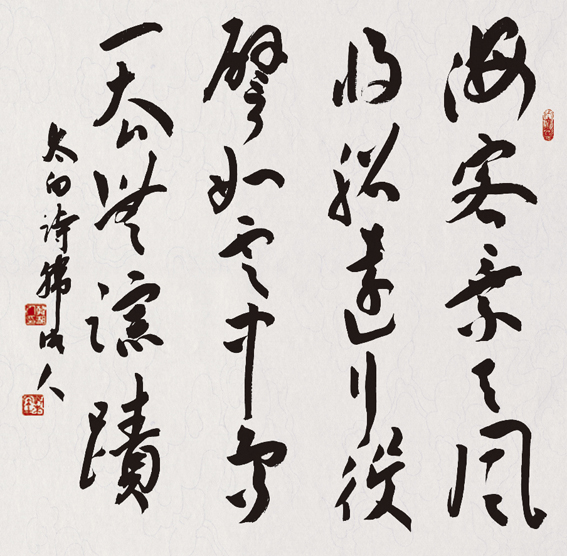 海客乘天風
将船遠行役
譬如雲中鳥
一去無踪蹟
太白诗